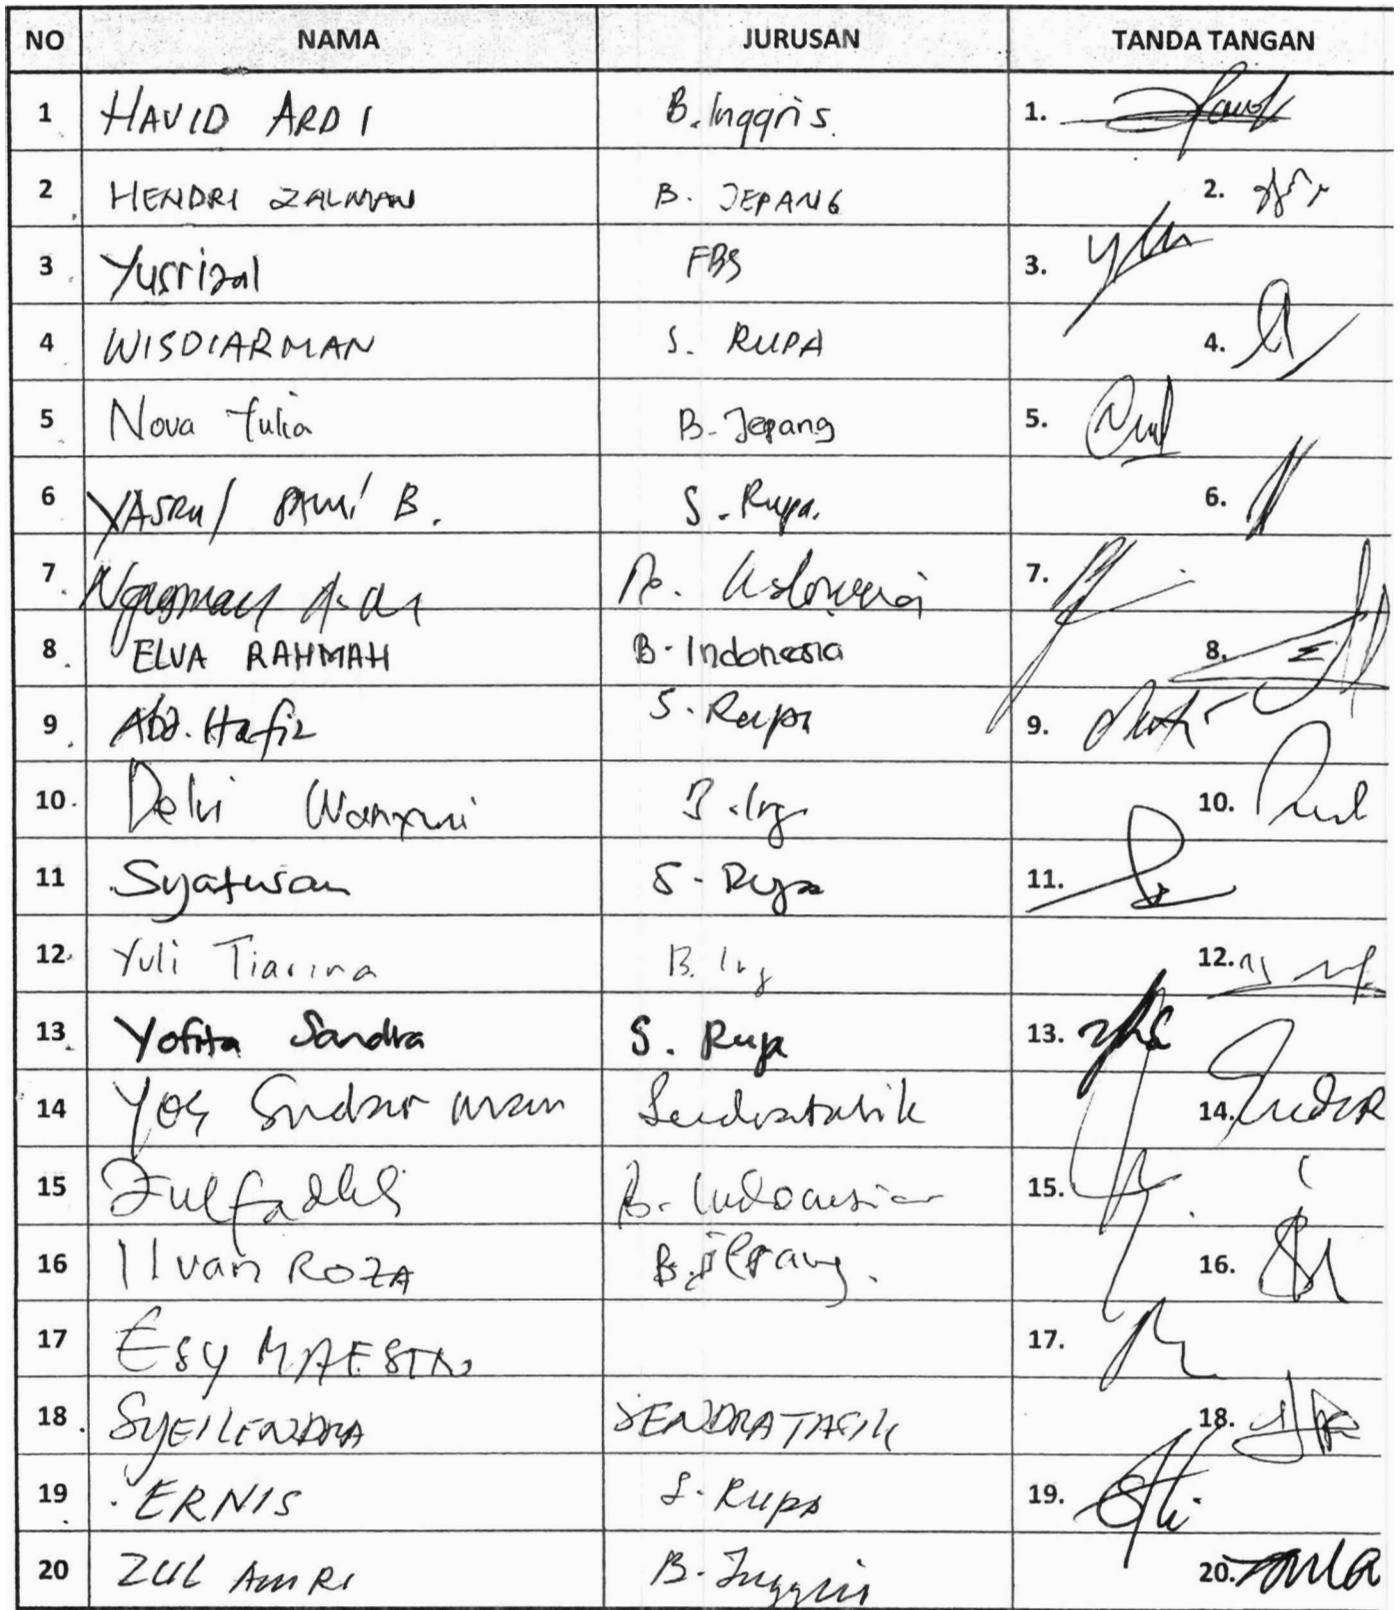 NO NAMA JURUSAN TANDA TANGAN
1 HAVID ARDI B. Inggris 1.
2 HENDRI ZALMAN B. JEPANG 2.
3 Yusrizal FBS 3.
4 WISDIARMAN S. RUPA 4.
5 Nova Yulia B. Jepang 5.
6 YASRUL SAMI B. S. Rupa. 6.
7 7.
8 ELVA RAHMAH B. Indonesia 8.
9 Abd. Hafiz S. Rupa 9.
10 Delvi Wahyuni B. Ing 10.
11 Syafwan S. Rupa 11.
12 Yuli Tiarina B. Ing 12.
13 Yofita Sandra S. Rupa 13.
14 Yos Sudarman Sendratasik 14.
15 Zulfadhli B. Indonesia 15.
16 Ilvan ROZA B. Jepang. 16.
17 ESY MAESTRO 17.
18 SYEILENDRA SENDRATASIK 18.
19 ERNIS S. Rupa 19.
20 ZUL AMRI B. Inggris 20.